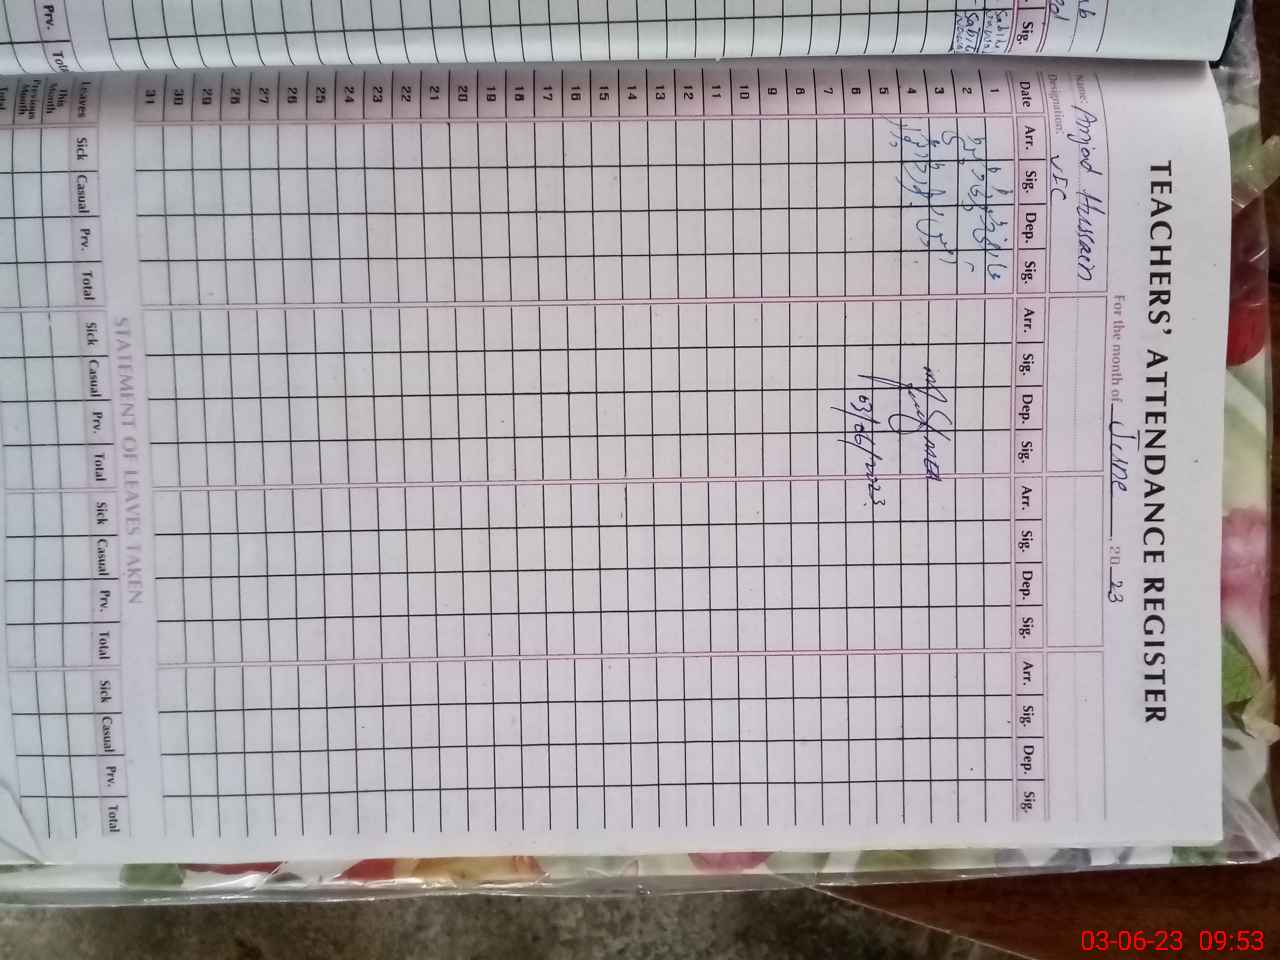 TEACHERS' ATTENDANCE REGISTER
For the month of June, 2023
Name: Amjad Hussain
Designation: JIC
Date Arr. Sig. Dep. Sig. Arr. Sig. Dep. Sig. Arr. Sig. Dep. Sig. Arr. Sig. Dep. Sig.
1
2
3
4
5
6
7
8
9
10
11
12
13
14
15
16
17
18
19
20
21
22
23
24
25
26
27
28
29
30
31
03/06/2023
STATEMENT OF LEAVES TAKEN
Leaves Sick Casual Prv. Total Sick Casual Prv. Total Sick Casual Prv. Total Sick Casual Prv. Total
This Month
Previous Month
Total
Prv.
Total
Sig.
03-06-23 09:53